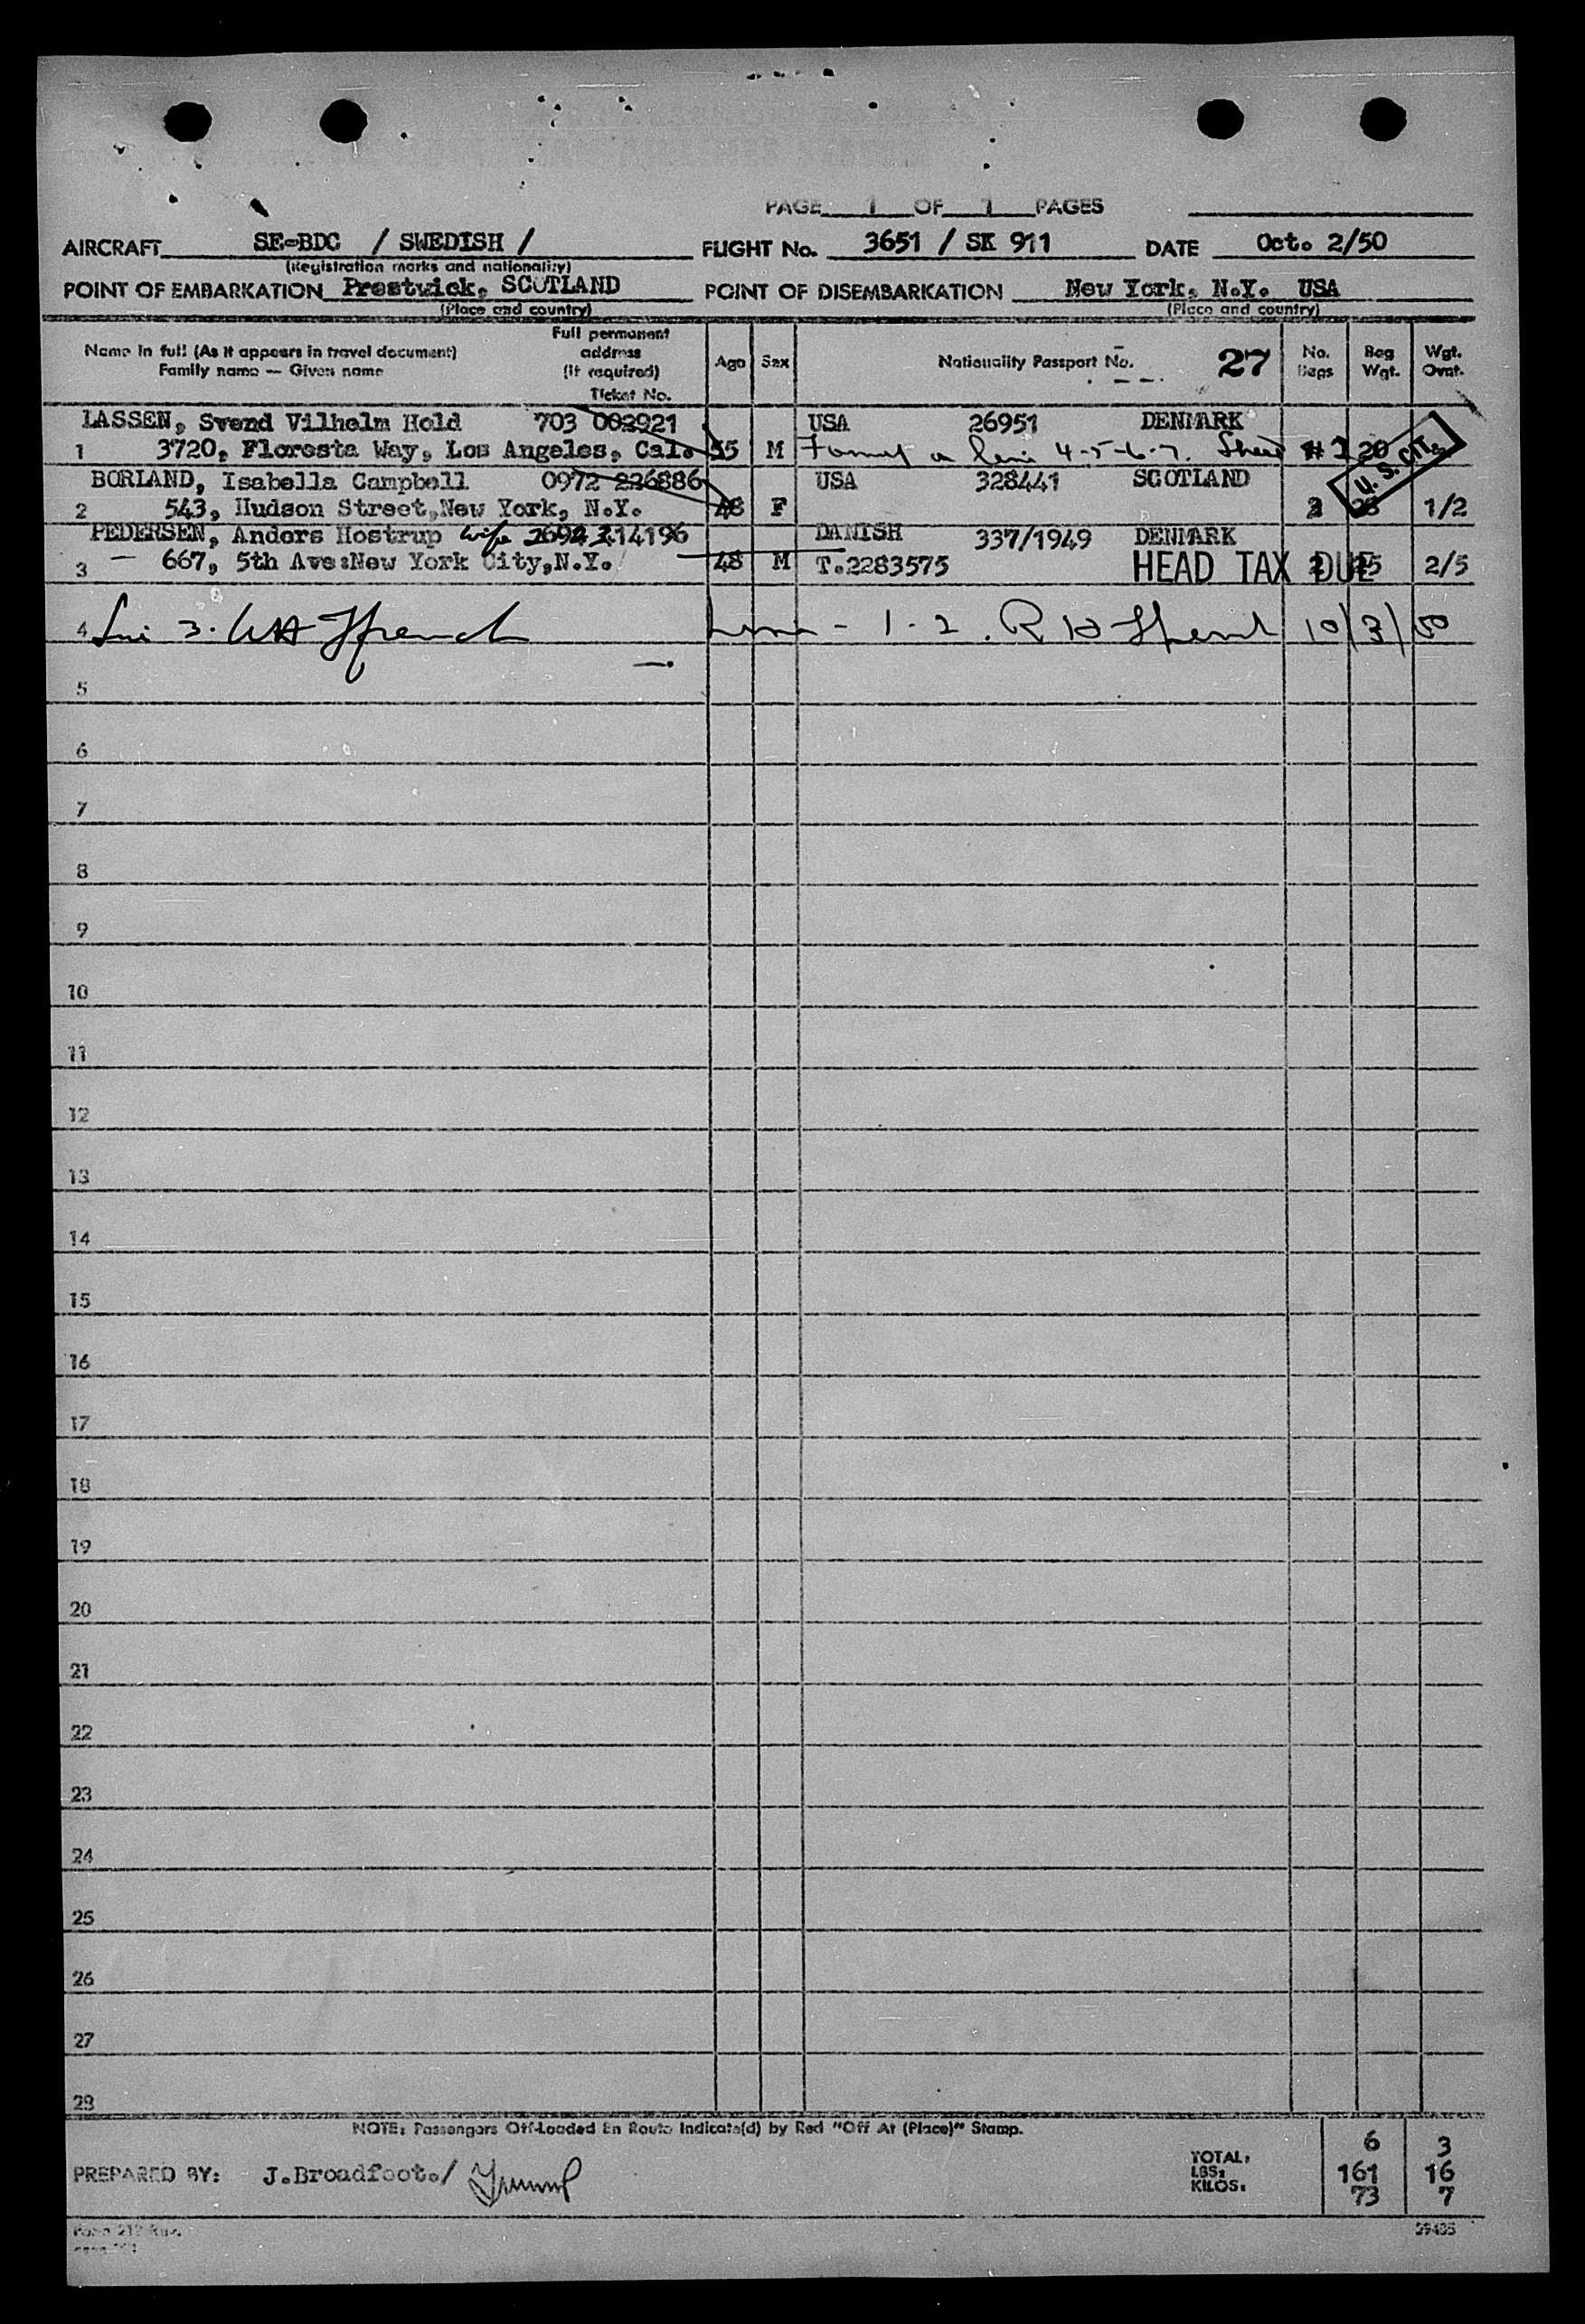 PAGE 1 OF 1 PAGES
AIRCRAFT SE-BDC / SWEDISH / FLIGHT No. 3651 / SK 911 DATE Oct. 2/50
(Registration marks and nationality)
POINT OF EMBARKATION Prestwick, SCOTLAND POINT OF DISEMBARKATION New York, N.Y. USA
(Place and country) (Place and country)
Name in full (As it appears in travel document) Family name — Given name Full permanent address (If required) Ticket No. Age Sex Nationality Passport No. 27 No. Bags Bag Wgt. Wgt. Ovnt.
LASSEN, Svend Vilhelm Hold 703 003921 USA 26951 DENMARK
1 3720, Floresta Way, Los Angeles, Cal. 55 M 4-5-6-7. Sheet # 20 U. S. CIT.
BORLAND, Isabella Campbell 0972 226886 USA 328441 SCOTLAND
2 543, Hudson Street, New York, N.Y. 48 F 2 1/2
PEDERSEN, Anders Hostrup wife 214196 DANISH 337/1949 DENMARK
3 — 667, 5th Ave: New York City, N.Y. 48 M T.2283575 HEAD TAX DUE 25 2/5
4 3. French 1-2. 10/3/50
5
6
7
8
9
10
11
12
13
14
15
16
17
18
19
20
21
22
23
24
25
26
27
28
NOTE: Passengers Off-Loaded En Route Indicate(d) by Red "Off At (Place)" Stamp.
TOTAL: 6 3
PREPARED BY: J.Broadfoot./ LBS: 161 16
KILOS: 73 7